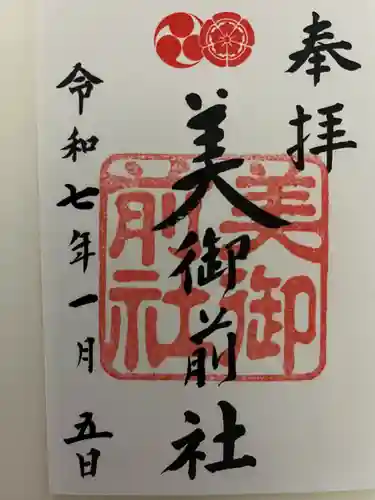 奉拝
美御前社
令和七年一月五日
美御
前社